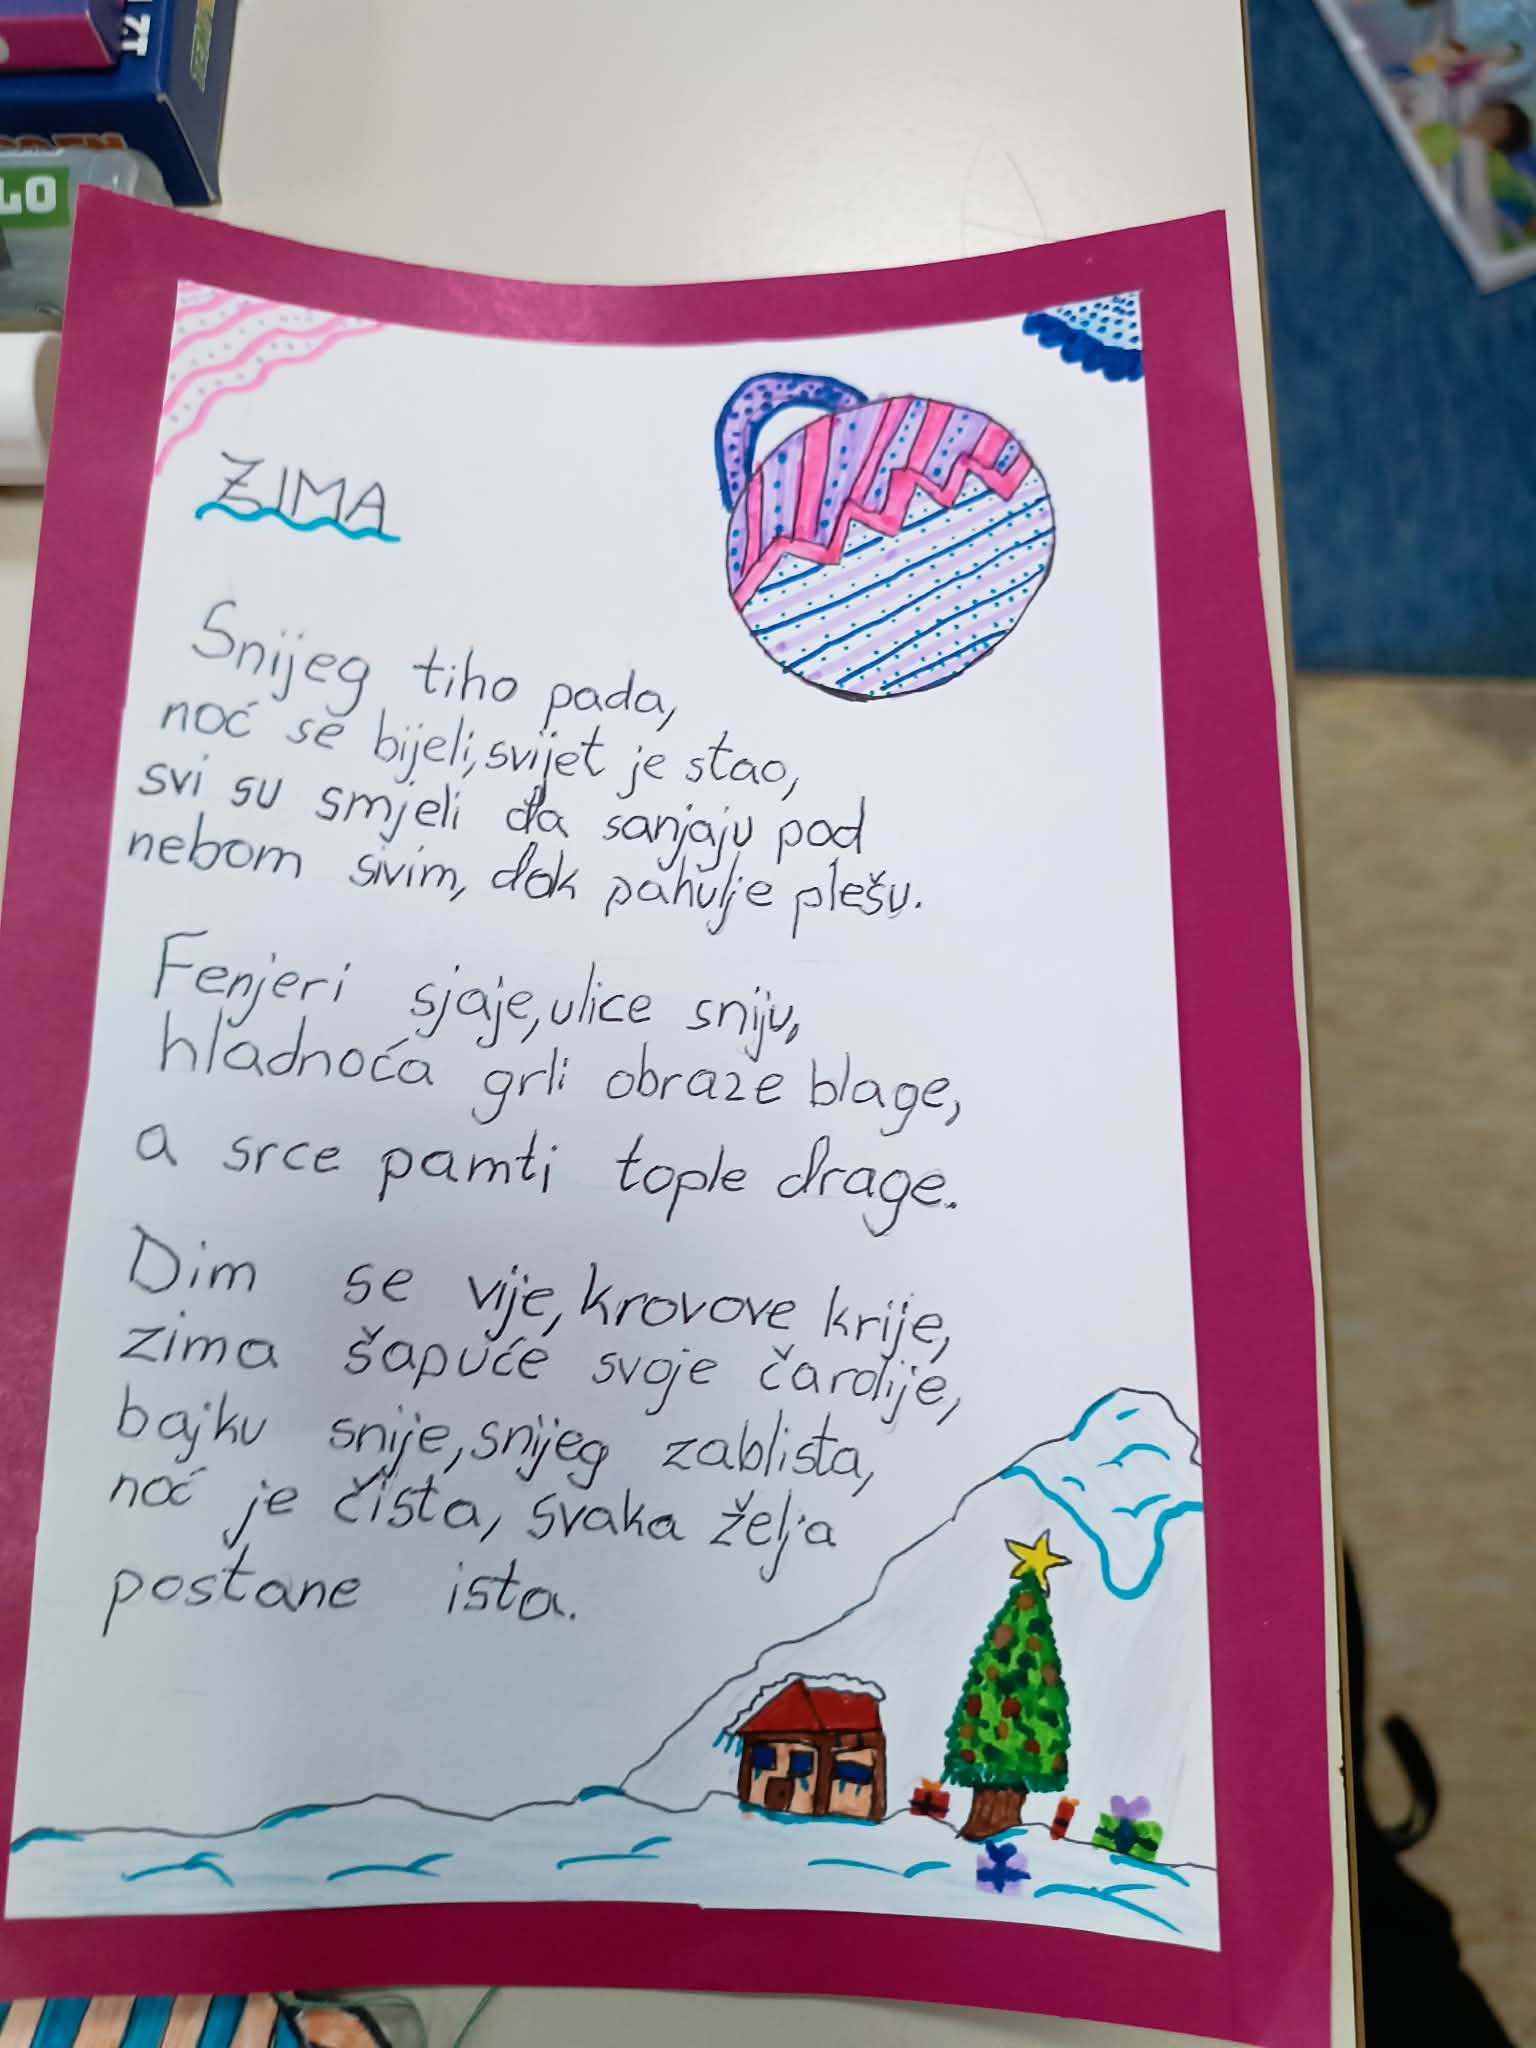 LO
ZIMA
Snijeg tiho pada,
noć se bijeli, svijet je stao,
svi su smjeli da sanjaju pod
nebom sivim, dok pahulje plešu.
Fenjeri sjaje, ulice sniju,
hladnoća grli obraze blage,
a srce pamti tople drage.
Dim se vije, krovove krije,
zima šapuće svoje čarolije,
bajku snije, snijeg zablista,
noć je čista, svaka želja
postane ista.